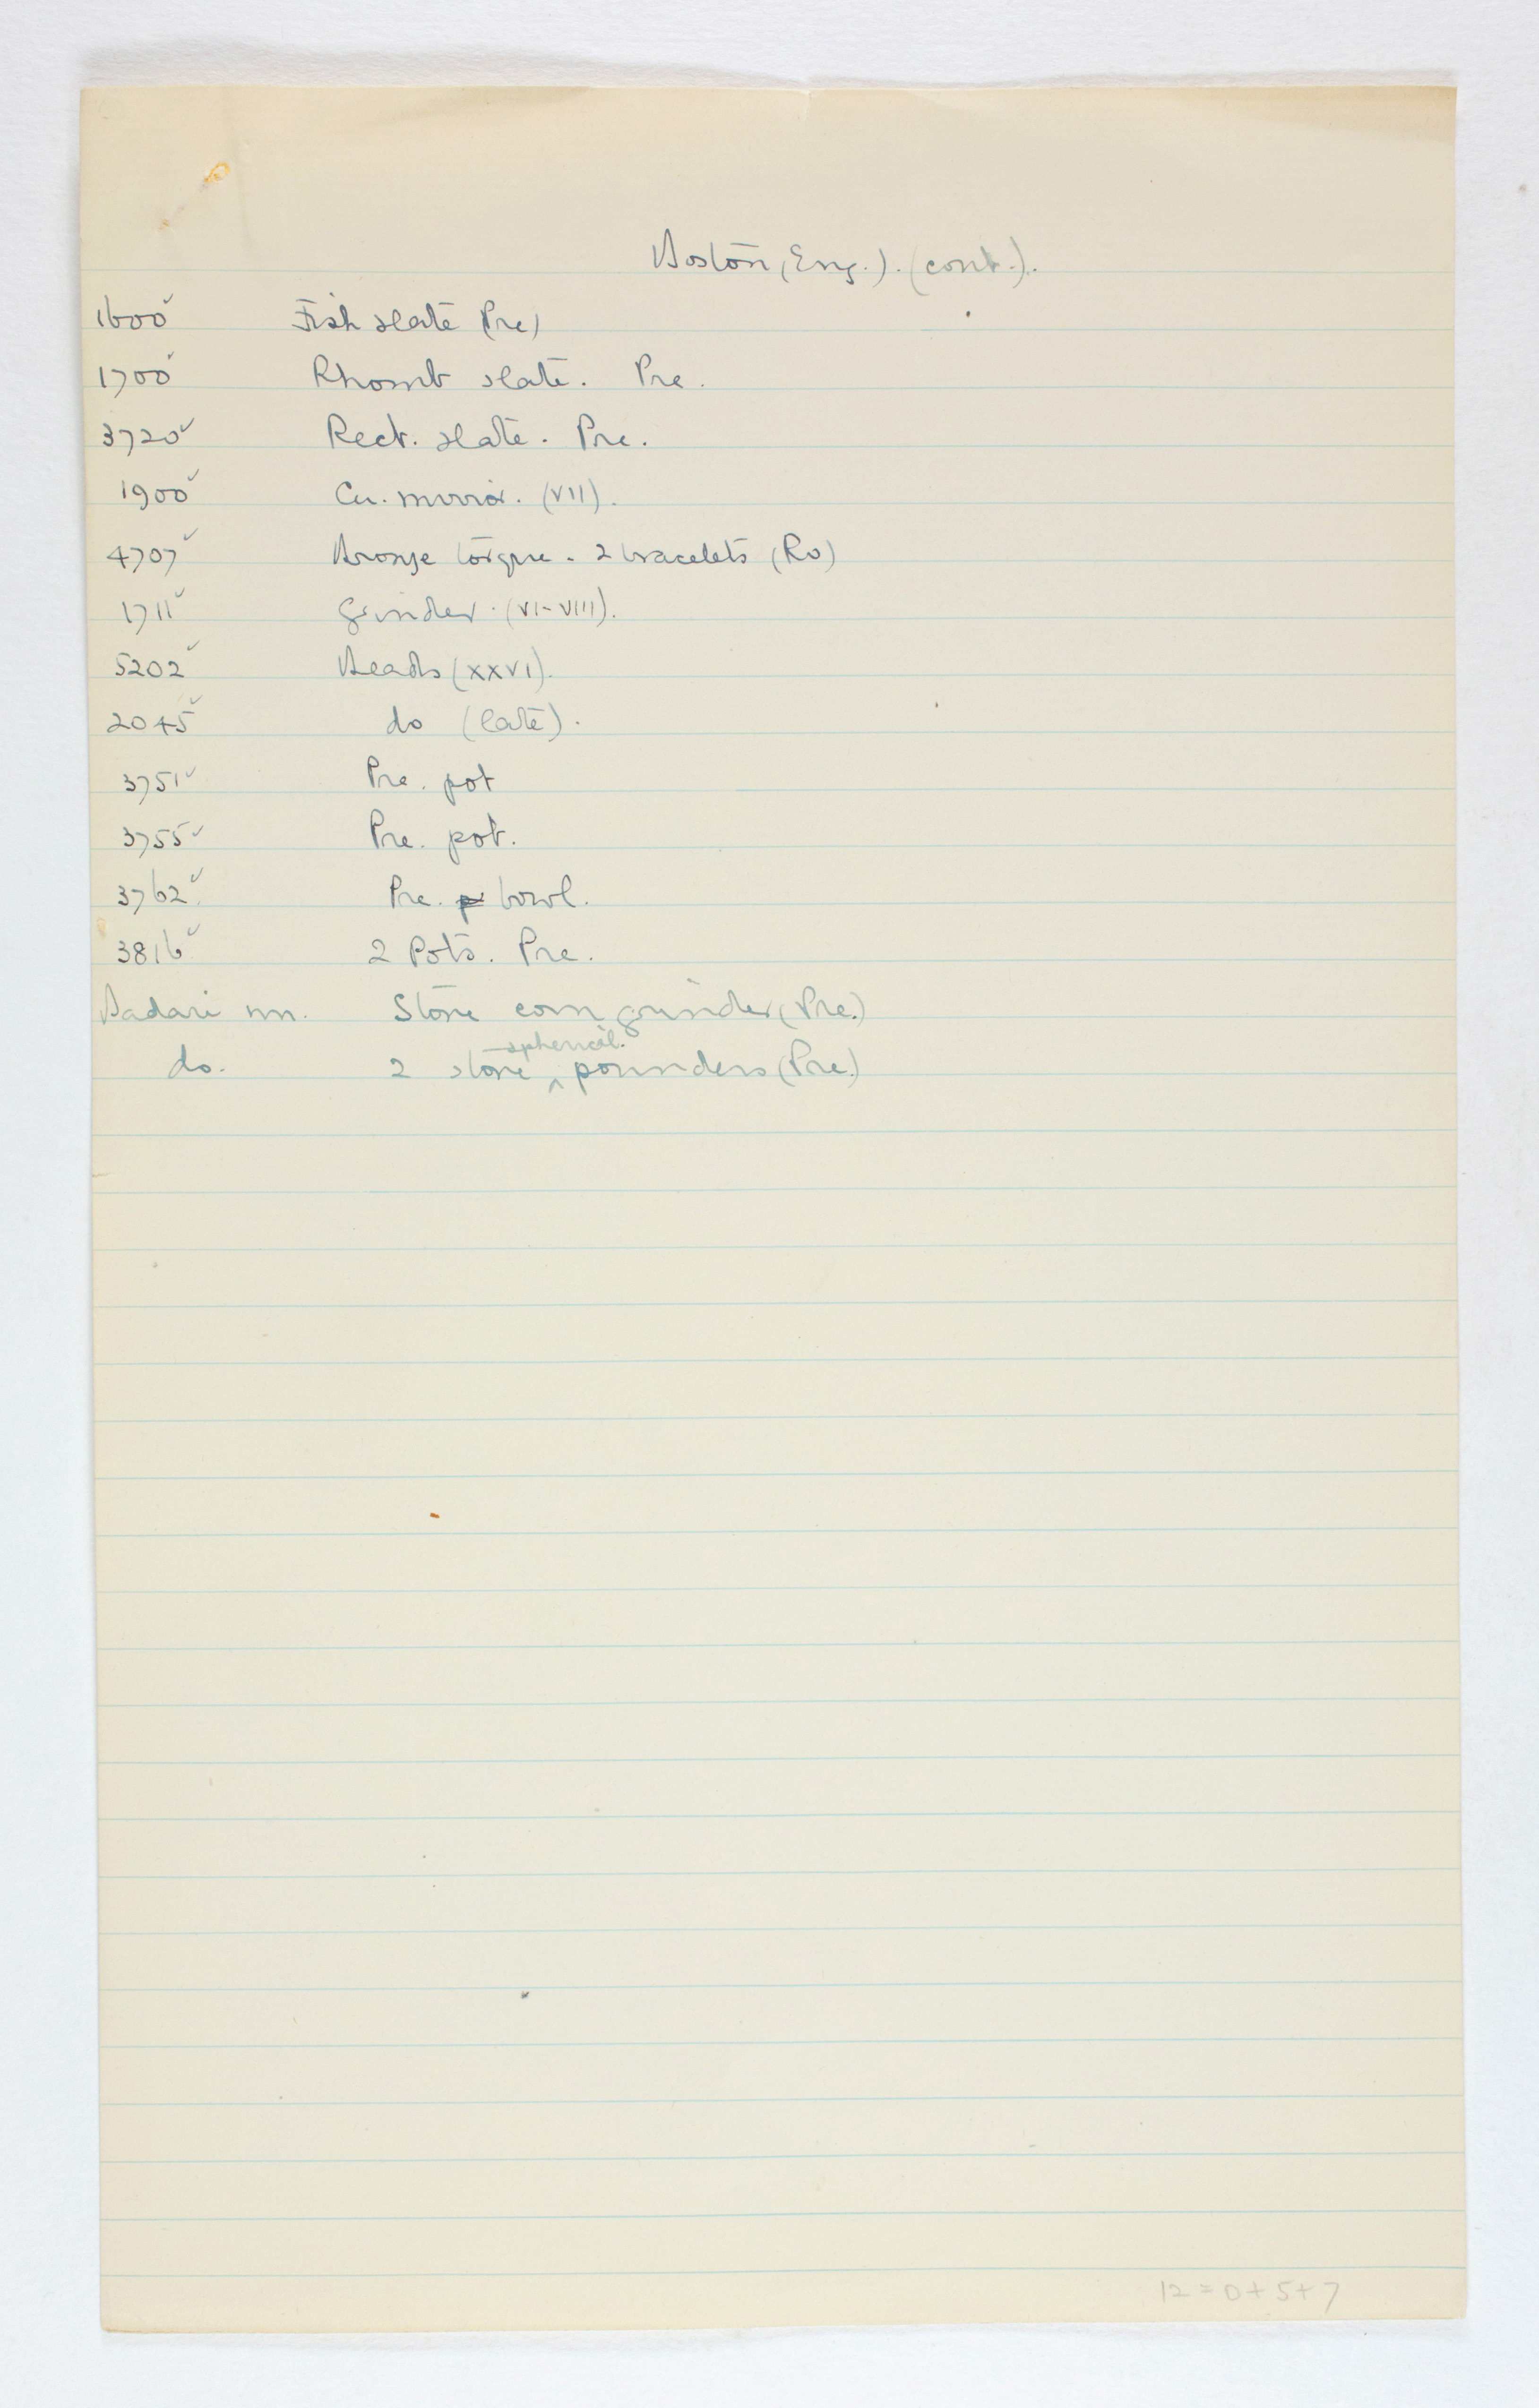 Boston (Eng.). (cont.).
1600 ✓ Fish slate (Pre)
1700 ✓ Rhomb slate. Pre.
3720 ✓ Rect. slate. Pre.
1900 ✓ Cu. mirror. (VII).
4707 ✓ Bronze torque - 2 bracelets (Ro)
1711 ✓ Grinder. (VI-VIII).
5202 ✓ Beads (XXVI).
2045 ✓ do (late).
3751 ✓ Pre. pot
3755 ✓ Pre. pot.
3762 ✓ Pre. p bowl.
3816 ✓ 2 Pots. Pre.
Badari nn. Stone corn grinder (Pre.)
do. 2 stone ^ spherical. pounders (Pre.)
12 = 0 + 5 + 7